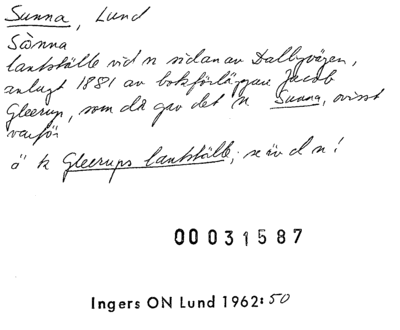 Sunna, Lund
Sònna
lantställe vid n sidan av Dalbyvägen,
anlagt 1881 av bokförläggare Jacob
Gleerup, som då gav det n Sunna, ovisst
varför
ä k Gleerups lantställe; se äv d n!
00031587
Ingers ON Lund 1962:50